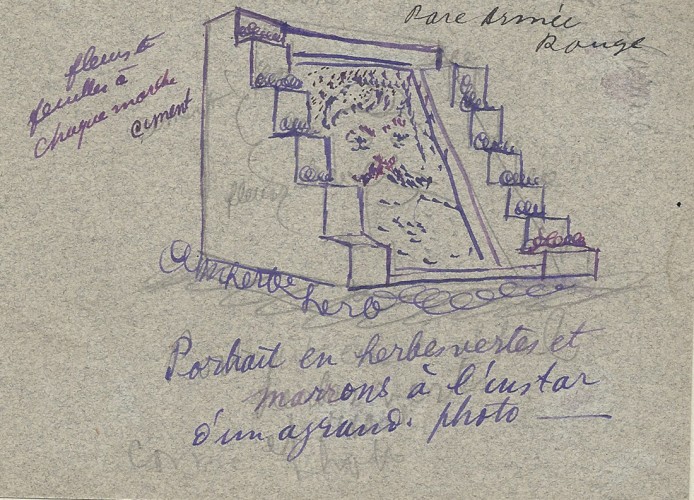 Parc Armée
Rouge
fleurs &
feuilles à
chaque marche
ciment
fleurs
herbe
herb
Portrait en herbes vertes et
marrons à l'instar
d'un agrand. photo